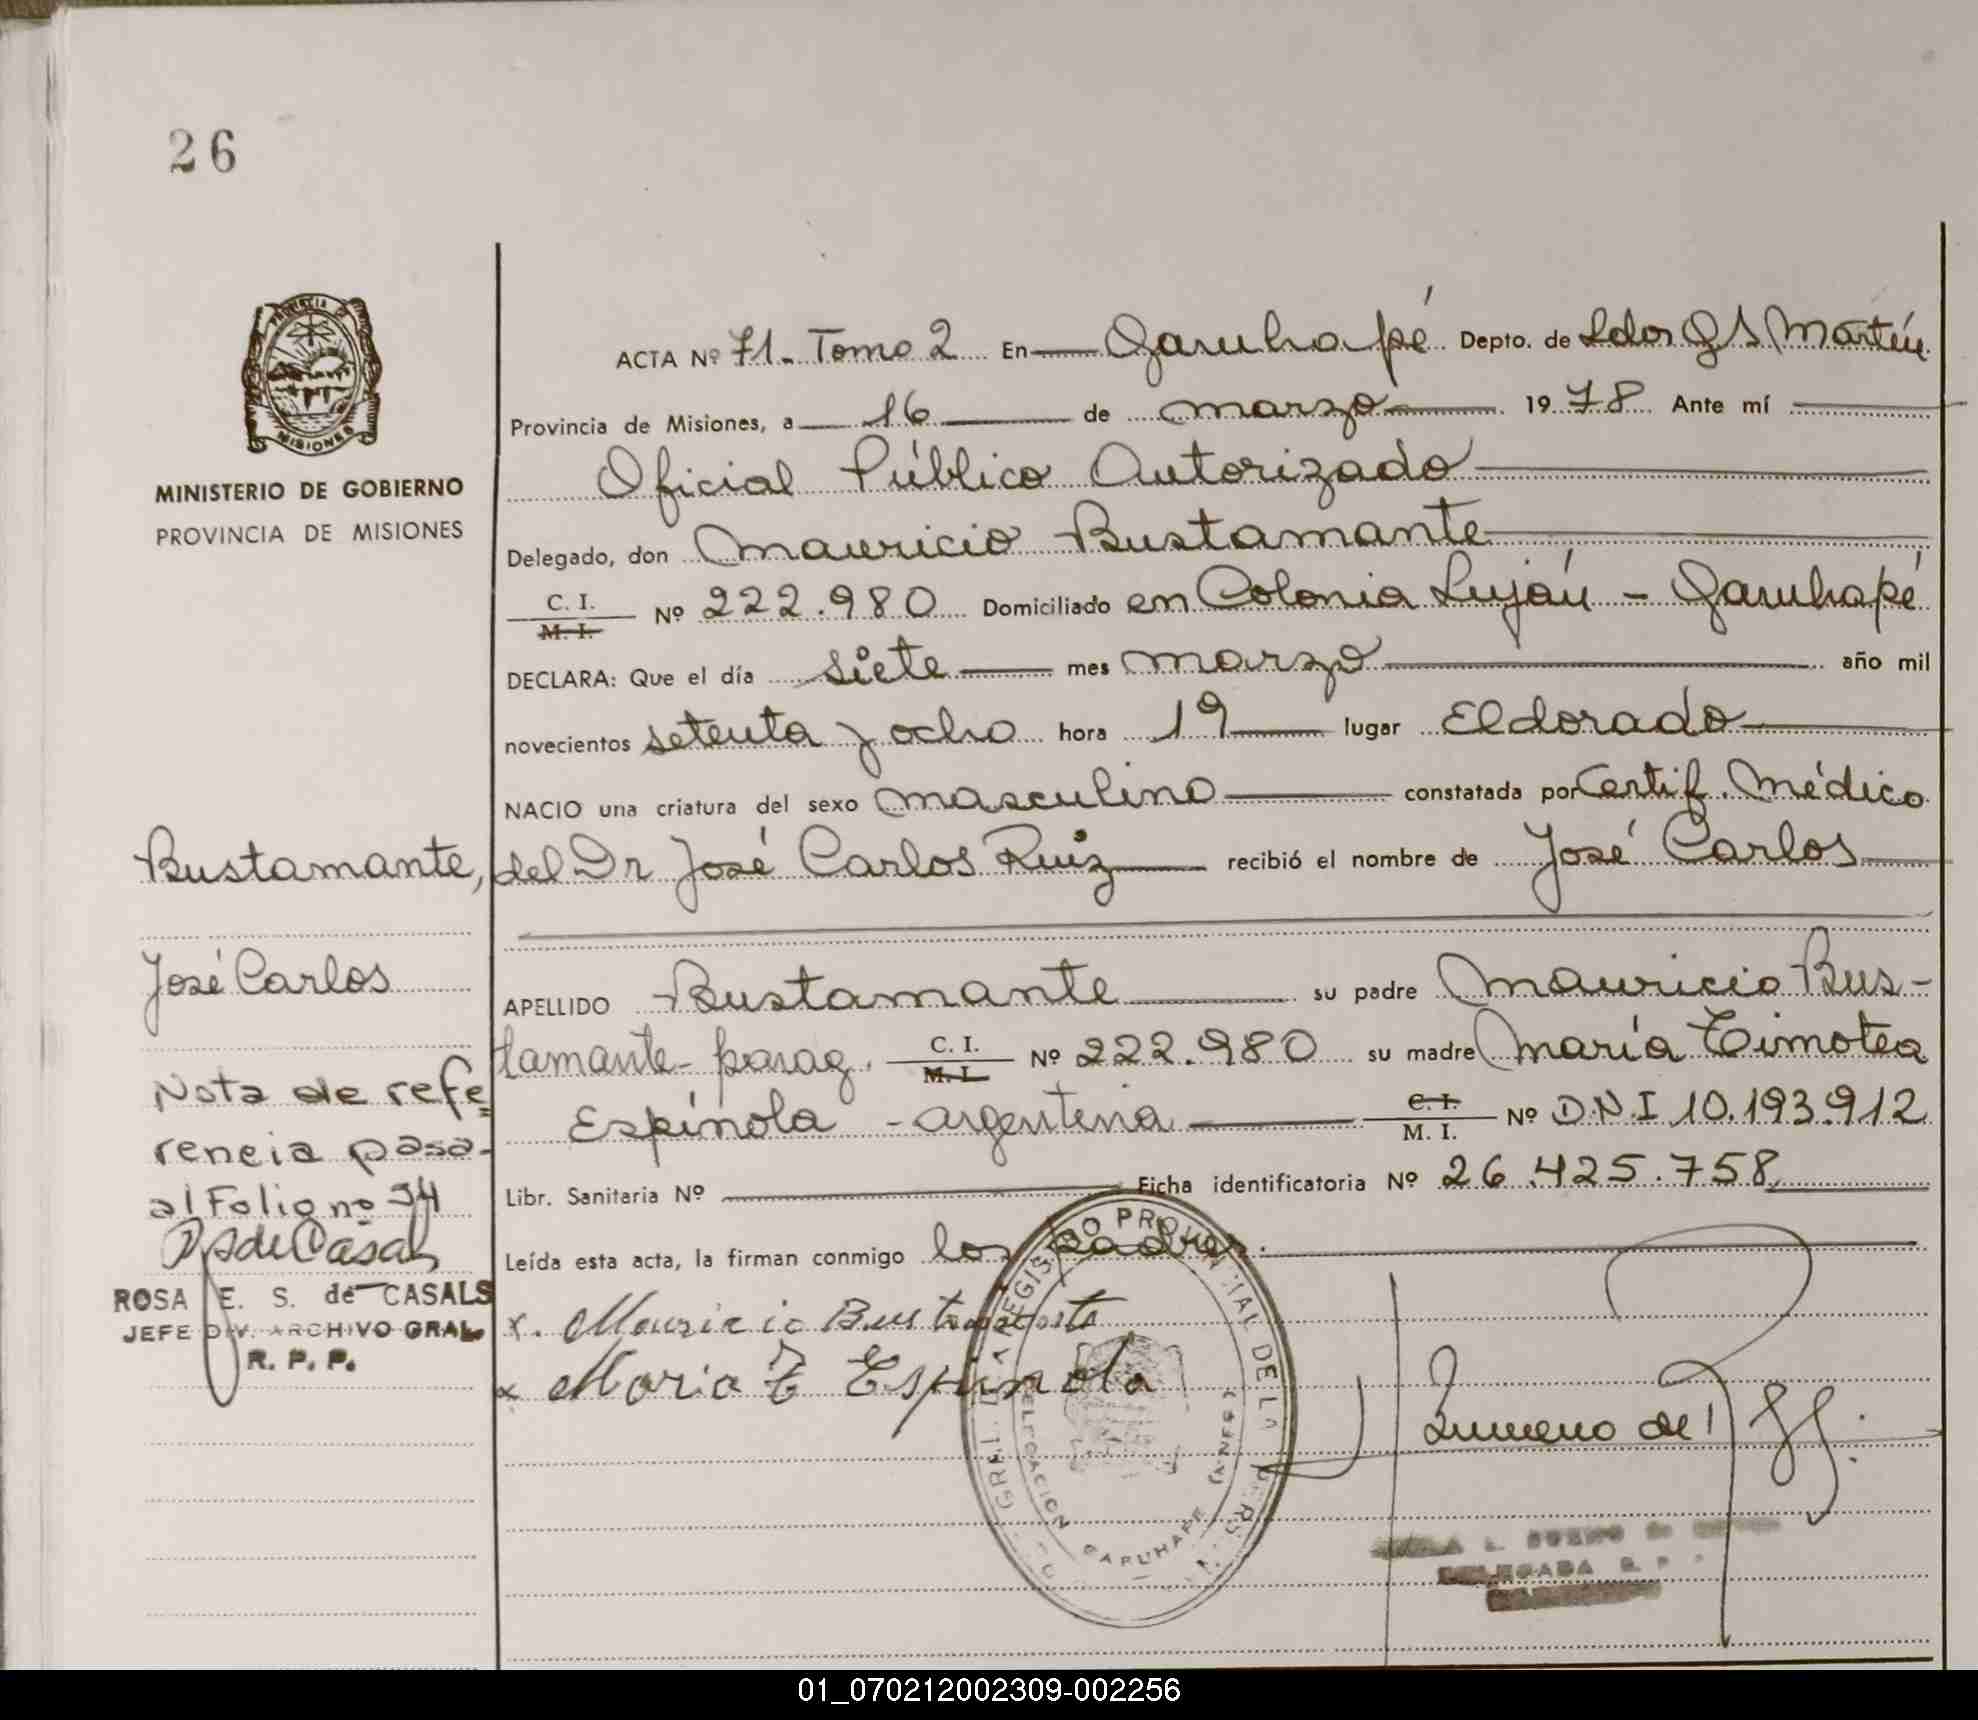 26
PROVINCIA DE
MISIONES
MINISTERIO DE GOBIERNO
PROVINCIA DE MISIONES
ACTA Nº 71. Tomo 2 En Garuhapé Depto. de Ldor G S Martín
Provincia de Misiones, a 16 de marzo 1978 Ante mí
Oficial Público Autorizado
Delegado, don Mauricio Bustamante
C. I.
M. I.
Nº 222.980 Domiciliado en Colonia Luján - Garuhapé
DECLARA: Que el día siete mes marzo año mil
novecientos setenta y ocho hora 19 lugar Eldorado
NACIO una criatura del sexo masculino constatada por Certif. Médico
del Dr José Carlos Ruiz recibió el nombre de José Carlos
APELLIDO Bustamante su padre Mauricio Bus-
tamante - parag. C. I. M. I. Nº 222.980 su madre María Timotea
Espínola - argentina C. I. M. I. Nº D.N.I 10.193.912
Libr. Sanitaria Nº Ficha identificatoria Nº 26.425.758
Leída esta acta, la firman conmigo los padres.
x. Mauricio Bustamante
x Maria T Espinola
Bustamante,
José Carlos
Nota de refe
rencia pasa
al Folio nº 94
RSdeCasals
ROSA E. S. de CASALS
JEFE DIV. ARCHIVO GRAL.
R. P. P.
REGISTRO PROVINCIAL DE LAS PERS
DELEGACION GARUHAPE
(MNES)
DELEGADA R. P.
01_070212002309-002256